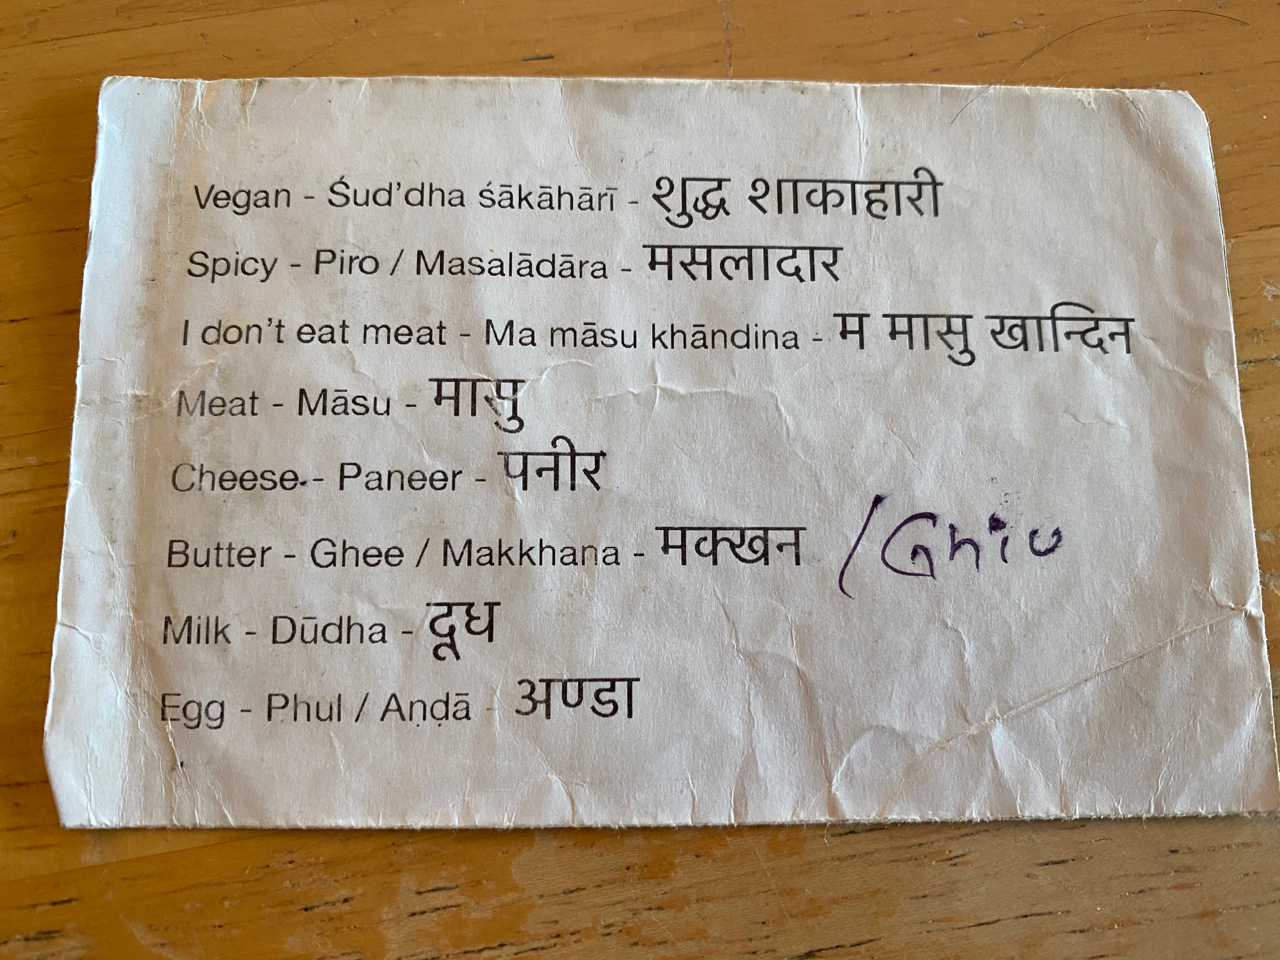 Vegan - Śud’dha śākāhārī - शुद्ध शाकाहारी
Spicy - Piro / Masalādāra - मसलादार
I don’t eat meat - Ma māsu khāndina - म मासु खान्दिन
Meat - Māsu - मासु
Cheese - Paneer - पनीर
Butter - Ghee / Makkhana - मक्खन / Ghiu
Milk - Dūdha - दूध
Egg - Phul / Aṇḍā - अण्डा